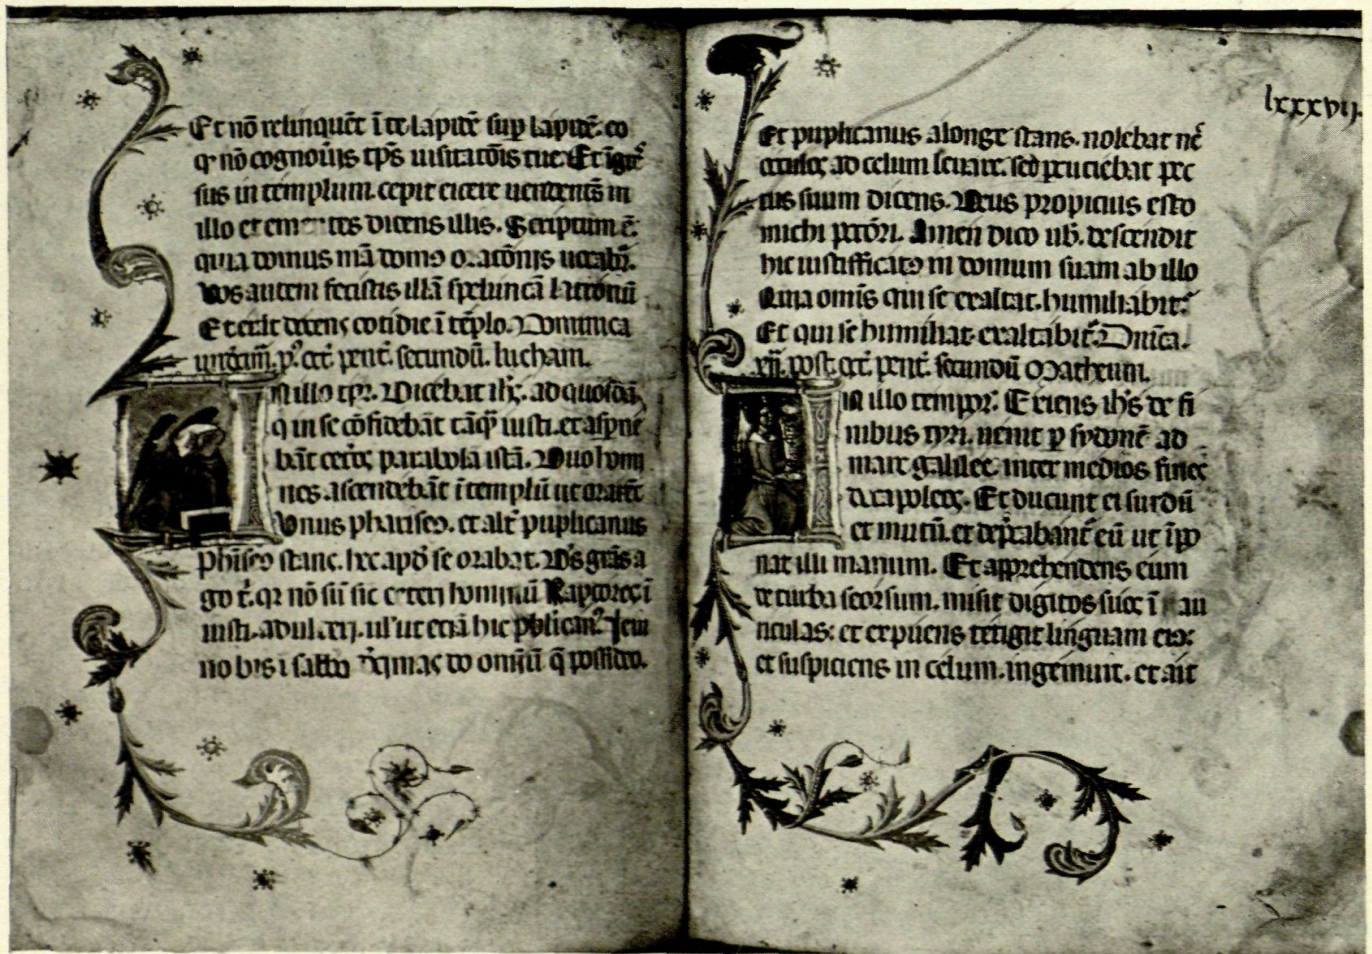 Et nō relinquēt ī te lapidē sup lapidē. eo
qr nō cognouis tp̄s uisitatōis tue. Et īgr̄es
sus in templum. cepit eicere uendentes in
illo et em tes dicens illis. Scriptum ē.
quia domus mā domꝰ oratōnis uocabit̄.
Vos autem fecistis illā speluncā latronū
Et erat docens cotidie ī tēplo. Dominica
undecim̄. pꝰ oct̄ pent̄. secundū. lucham.
N illo tpr̄. Dicebat ih̄s. ad quosdā
q in se cōfidebāt tāq̄ iusti. et aspne
bāt cet̄os parabolā istā. Duo homi
nes ascendebāt ī templū ut orarēt
Vnus phariseꝰ. et alt̄ puplicanus
Phīseꝰ stans. hec apd̄ se orabat. Dȳs grās a
go t̄. qr nō sū sic ceteri hominū Raptores ī
iusti. adulteri. ul' ut etiā hic pblicanꝰ. Ieiu
no bis ī sabbo decimas do omniū q̄ possideo.
lxxxvii.
Et puplicanus alonge stans. nolebat nc̄
oculos ad celum leuare. sed pcuciebat pec
tus suum dicens. Deus propicius esto
michi pctōri. Amen dico uob̄. descendit
hic iustifficatꝰ in domum suam ab illo
Quia omīs qui se exaltat. humiliabit̄.
Et qui se humiliat. exaltabit̄. Dnīca.
xij. post. oct̄. pent̄. secundū Matheum.
N illo tempor̄. Exiens ih̄s de fi
nibus tyri. uenit p sydonē ad
mare galilee. inter medios fines
decapoleos. Et ducunt ei surdū
et mutū. et dep̄cabant̄ eū ut īpo
nat illi manum. Et apprehendens eum
de turba seorsum. misit digitos suos ī au
riculas: et expuens tetigit linguam eiꝰ:
et suspiciens in celum. ingemuit. et ait